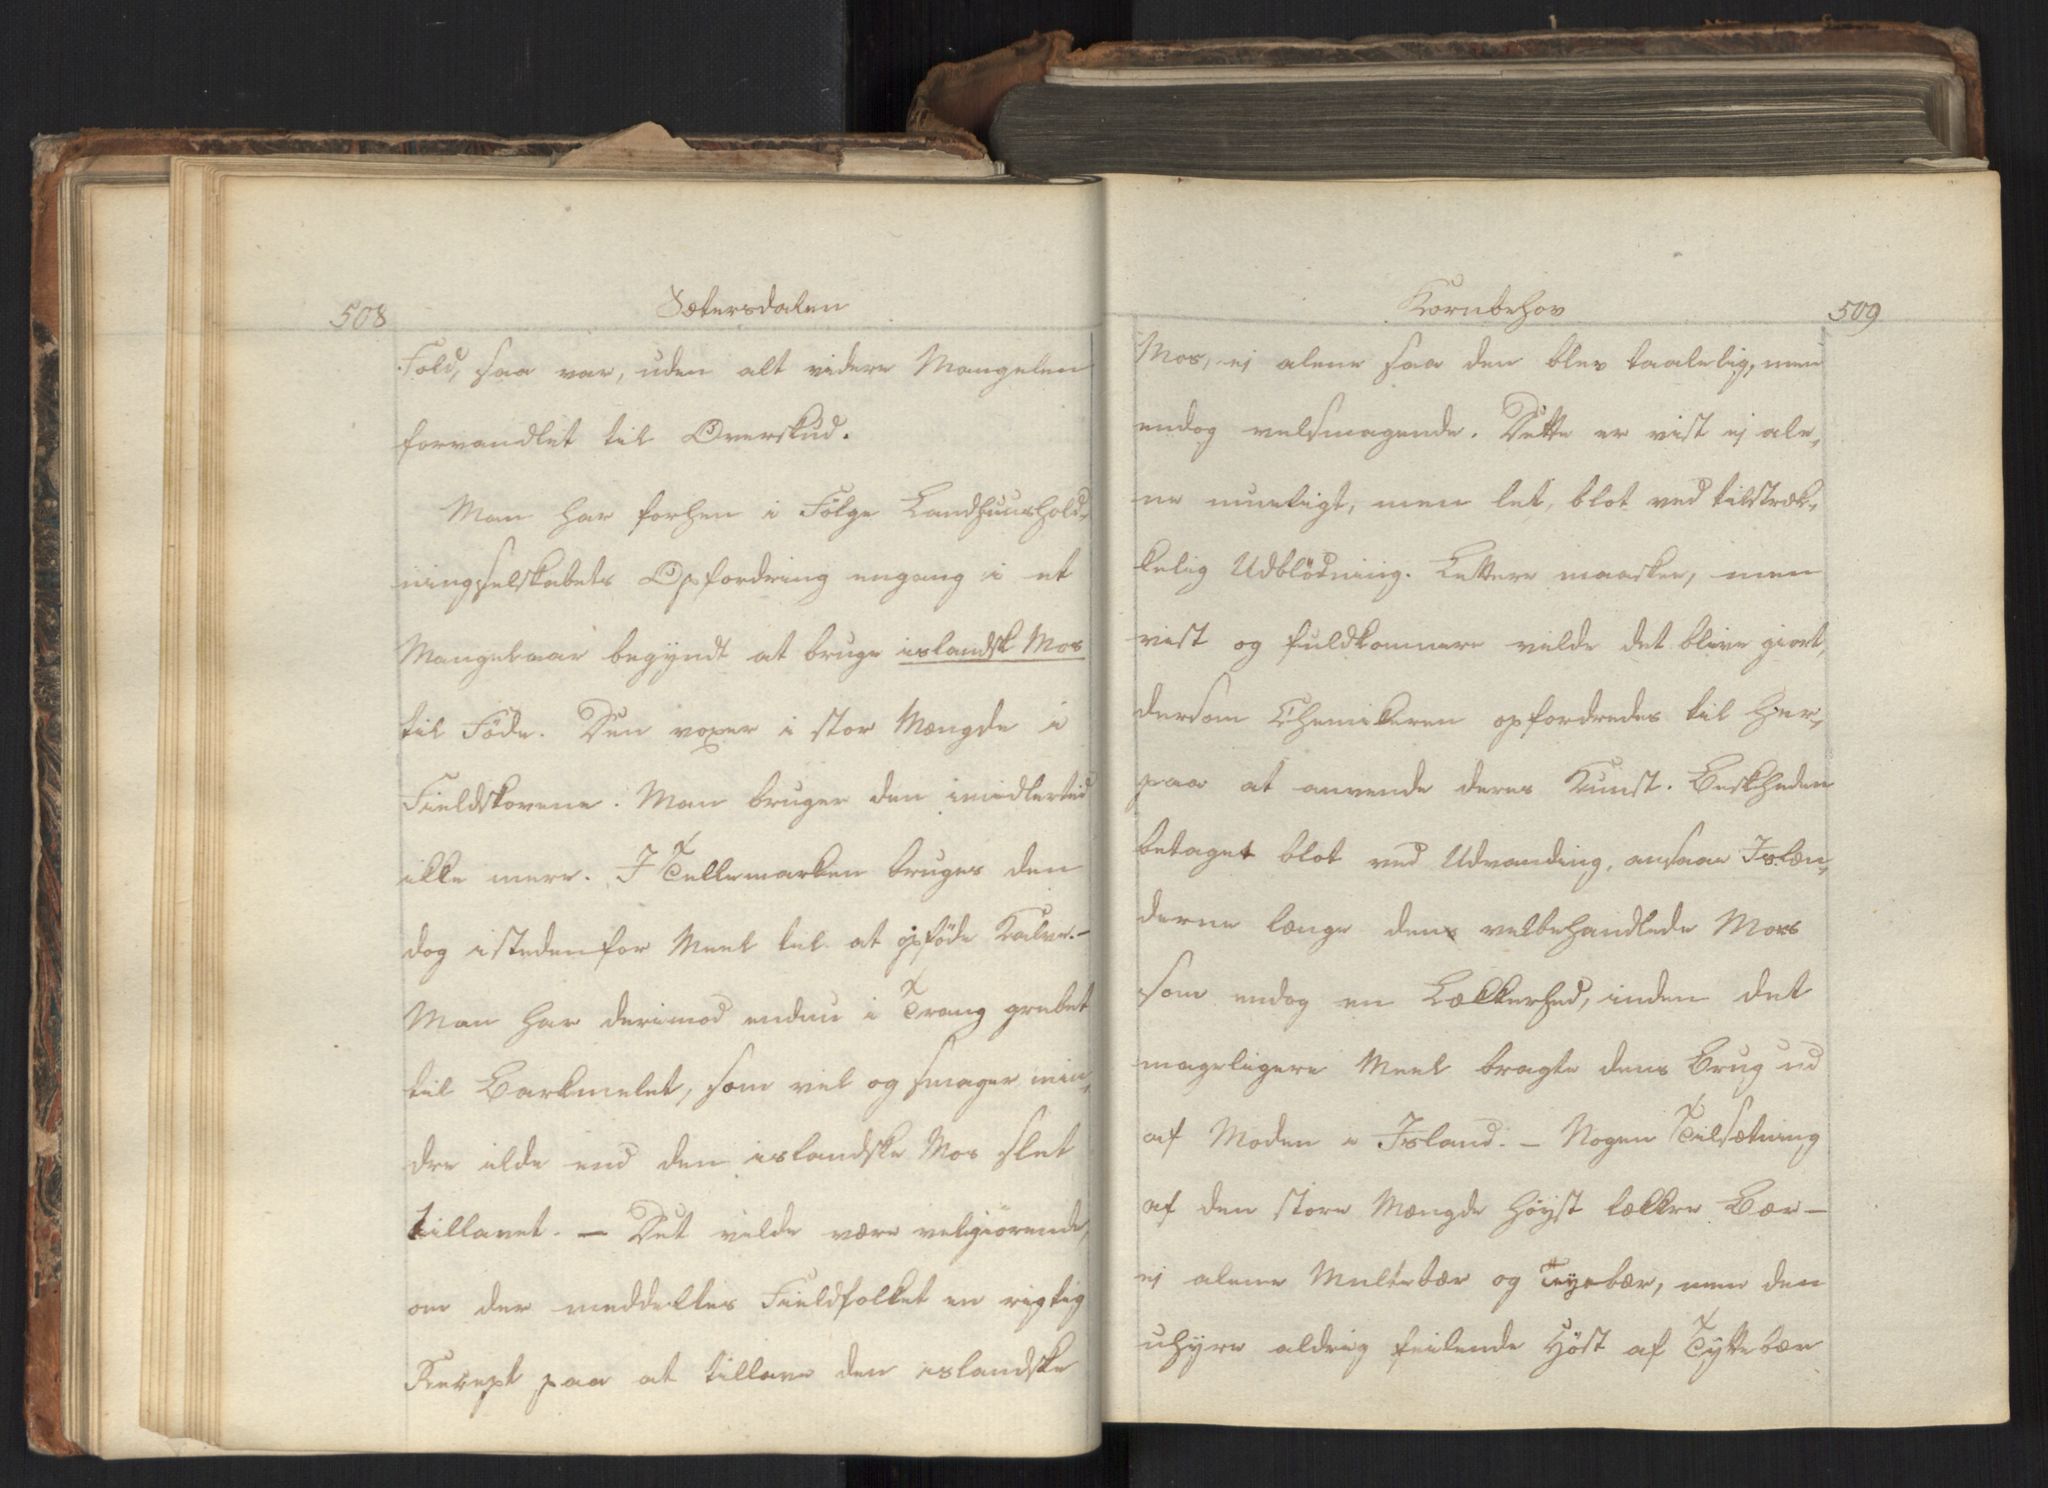 508
Sætersdalen
Fold, saa var, uden alt videre Mangelen
forvandlet til Overskud.
Man har forhen i Fölge Landhuushold-
ningsselskabets Opfordring engang i et
Mangelaar begyndt at bruge islandsk Mos
til Föde. Den voxer i stor Mængde i
Fieldskovene. Man bruger den imidlertid
ikke mere. I Tellemarken bruges den
dog istedenfor Meel til at opföde Kalve.-
Man har derimod endnu i Trang grebet
til Barkmelet, som vel og smager min,
dre ilde end den islandske Mos slet
tillavet. - Det vilde være velgiörende,
om der meddeltes Fieldfolket en rigtig
Recept paa at tillave den islandske
Kornbehov
509
Mos, ej alene saa den blev taalelig, men
endog velsmagende. Dette er vist ej ale,
ne mueligt, men let, blot ved tilstræk,
kelig Udblödning. Lettere maaskee, men
vist og fuldkomnere vilde det blive giort,
dersom Chemikeren opfordredes til her,
paa at anvende deres Kunst. Beskheden
betaget blot ved Udvanding, ansaae Islæn,
derne længe den velbehandlede Mos
som endog en Lækkerhed, inden det
mageligere Meel bragte dens Brug ud
af Moden i Island. - Nogen Tilsætning
af den store Mængde höyst lækkre Bær -
ej alene Multebær og Teyebær, men den
uhyre aldrig feilende Höst af Tyttebær